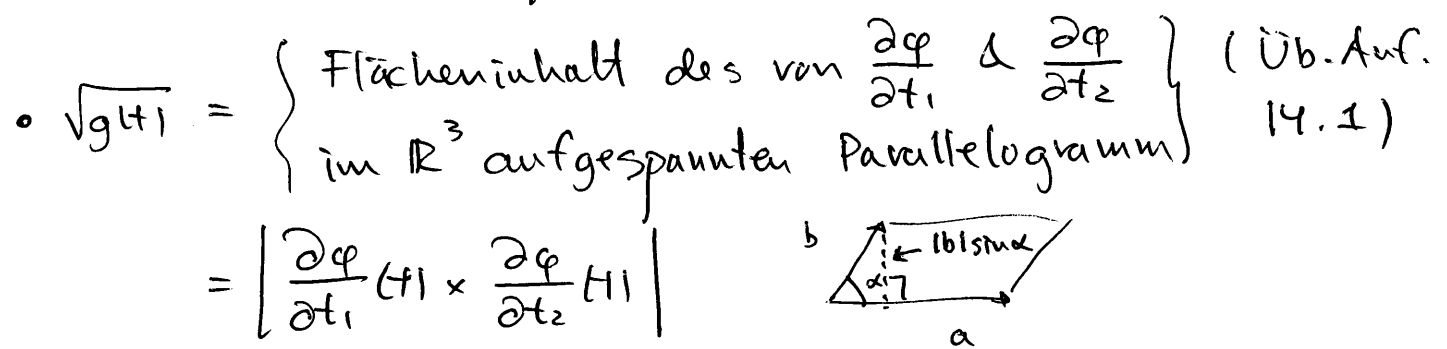 • √g(t) = { Flächeninhalt des von ∂φ/∂t₁ & ∂φ/∂t₂ } (Üb. Auf. 14.1)
im ℝ³ aufgespannten Parallelogramm
= | ∂φ/∂t₁ (t) × ∂φ/∂t₂ (t) |
b ← |b| sin α
α
a